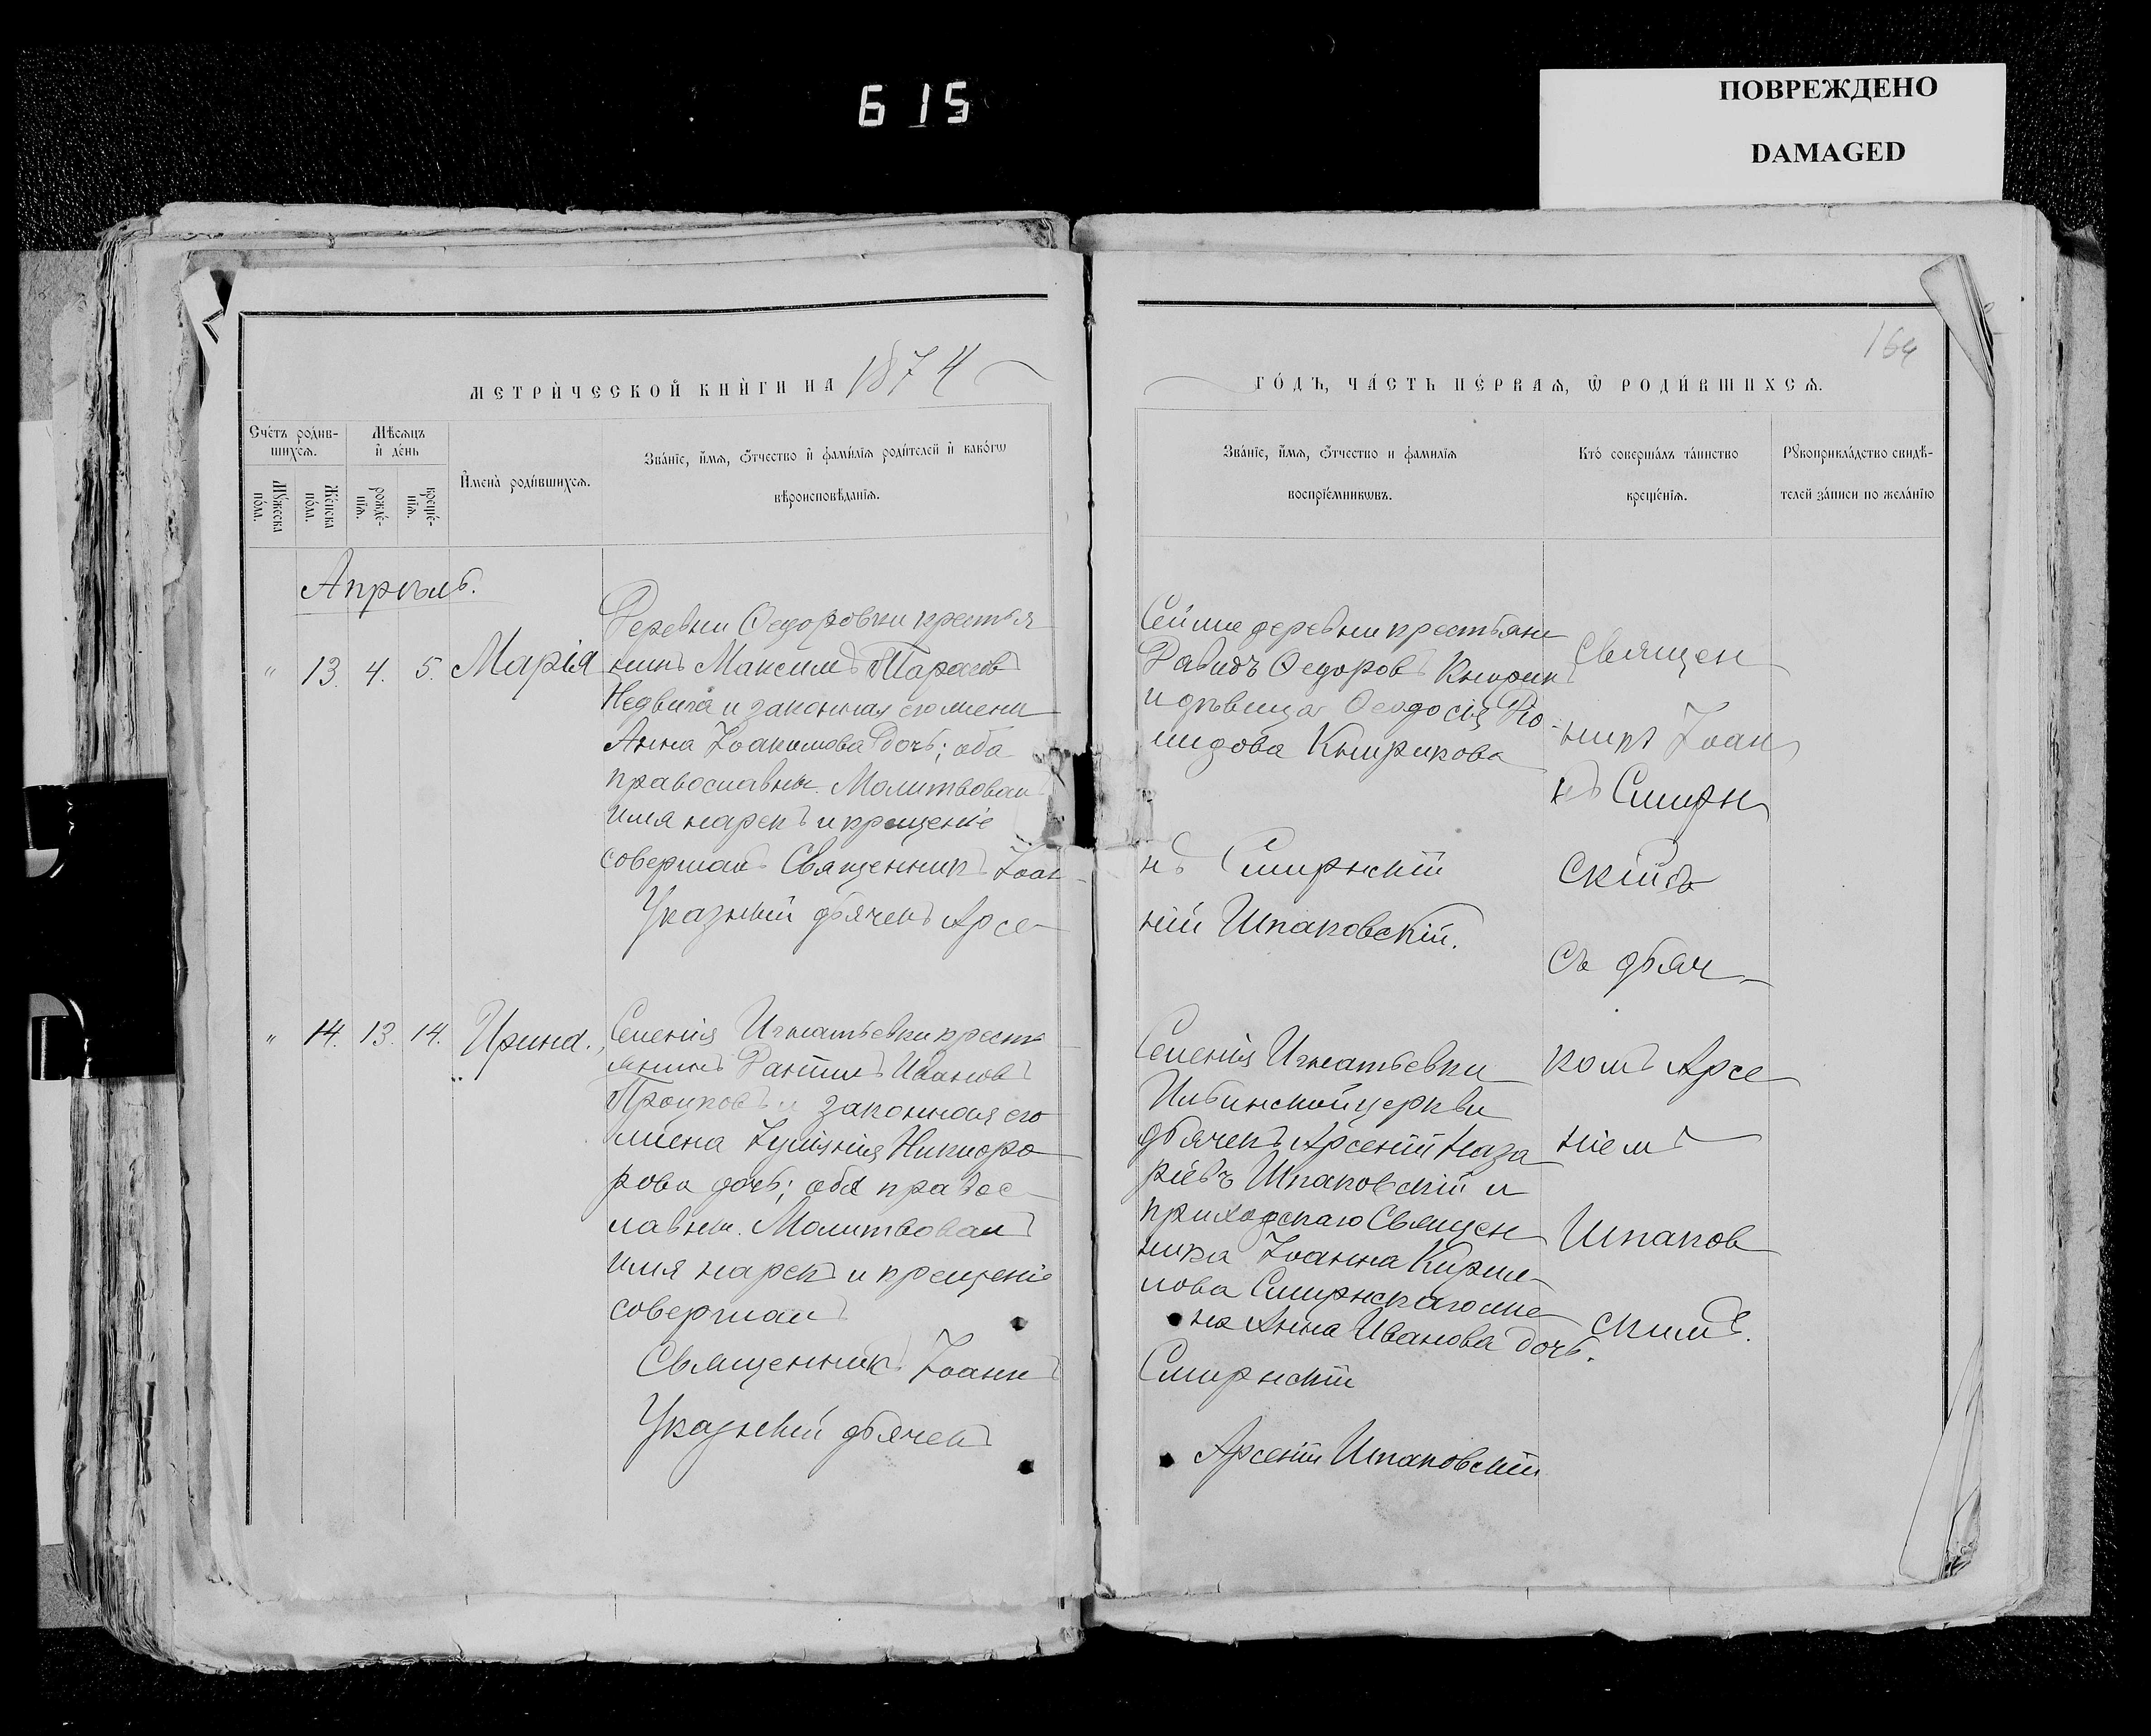 615
ПОВРЕЖДЕНО
DAMAGED
164
МЕТРИ́ЧЕСКОЙ КНИ́ГИ НА 1874
ГО́ДЪ, ЧА́СТЬ ПЕ́РВАѦ, Ѿ РОДИ́ВШИХСѦ.
Сче́тъ роди́в-
шихсѧ.
Мѣ́сѧцъ
и҆ де́нь
Мꙋ́жеска
по́ла.
Же́нска
по́ла.
рожде́-
нїѧ.
креще́-
нїѧ.
И҆мена̀ роди́вшихсѧ.
Зва́нїе, и҆́мѧ, ѻ҆́тчество и҆ фами́лїѧ роди́телей и҆ како́гѡ
вѣроисповѣ́данїѧ.
Зва́нїе, и҆́мѧ, ѻ҆́тчество и фами́лїѧ
воспрїе́мникѡвъ.
Кто́ соверша́лъ та́инство
креще́нїѧ.
Рꙋкоприкла́дство свидѣ́-
телей за́писи по жела́нїю
Апрѣль.
" 13. 4. 5. Марія
Деревни Ѳедоровки крестья
нинъ Максимъ Тарасовъ
Недвига и законная его жена
Анна Іоакимова дочь; оба
православны. Молитвовал
имя нарекъ и крещеніе
совершалъ Священникъ Іоан
Указный дьячекъ Арсе
Сейже деревни крестьяни
Ѳедоровъ
и дѣвица Ѳеодосія
нъ Смирнскій
ній Шпаковскій.
Священ
никъ Іоан
нъ Смирн
скій съ
съ дьяч
комъ Арсе
ніемъ
Шпаков
скимъ.
" 14. 13. 14. Ирина.
Селенія Игнатьевки крестья
янинъ Иванов
и законная его
жена
рова дочь; оба правос
лавны. Молитвовалъ
имя нарекъ и крещеніе
совершалъ
Священникъ Іоаннъ
Указный дьячекъ
Селенія Игнатьевки
церкви
дьячекъ Арсеній Наза
ріевъ Шпаковскій и
приходскаго Священ
ника Іоанна Кирил
лова Смирнскаго же
на Анна Иванова дочь.
Смирнскій
Арсеній Шпаковскій